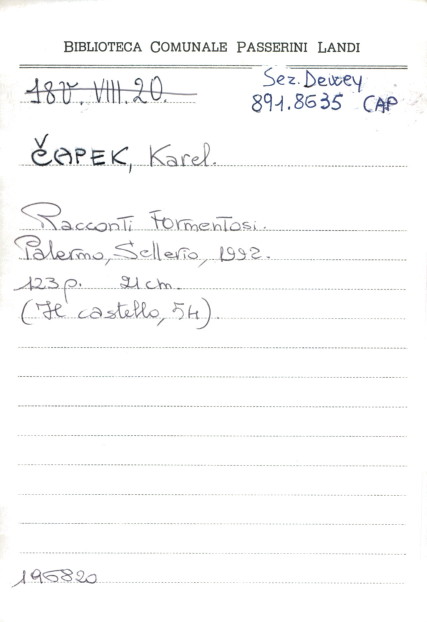 BIBLIOTECA COMUNALE PASSERINI LANDI
18V. VIII. 20.
Sez. Dewey
891.8635 CAP
ČAPEK, Karel.
Racconti tormentosi.
Palermo, Sellerio, 1992.
123 p. 21 cm.
(Il castello, 54).
196820